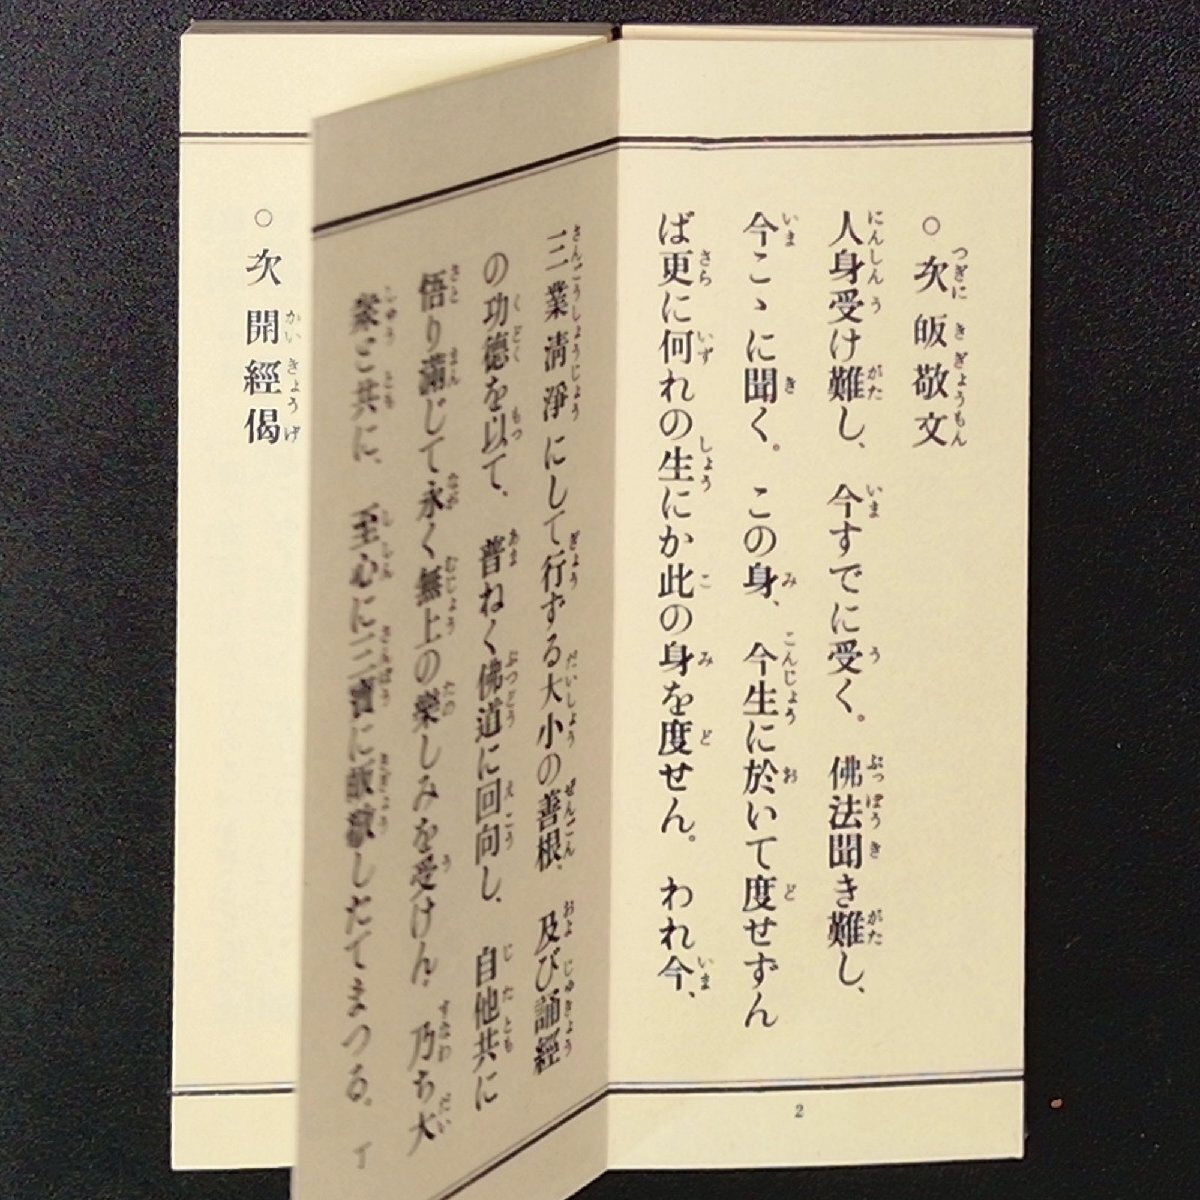 ○次皈敬文
人身受け難し、今すでに受く。佛法聞き難し、
今こゝに聞く。この身、今生に於いて度せずん
ば更に何れの生にか此の身を度せん。われ今、
三業清淨にして行ずる大小の善根、及び誦經
の功德を以て、普ねく佛道に回向し、自他共に
悟り滿じて永く無上の樂しみを受けん。乃ち大
衆と共に、至心に三寶に皈敬したてまつる。丁
○次開經偈
2